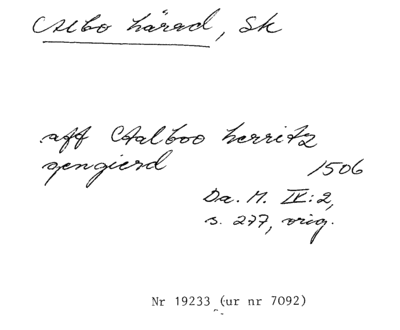 Albo härad, Sk
aff Astalboo herritz
gengierd
1506
Da. M. IV:2,
s. 277, orig.
Nr 19233 (ur nr 7092)